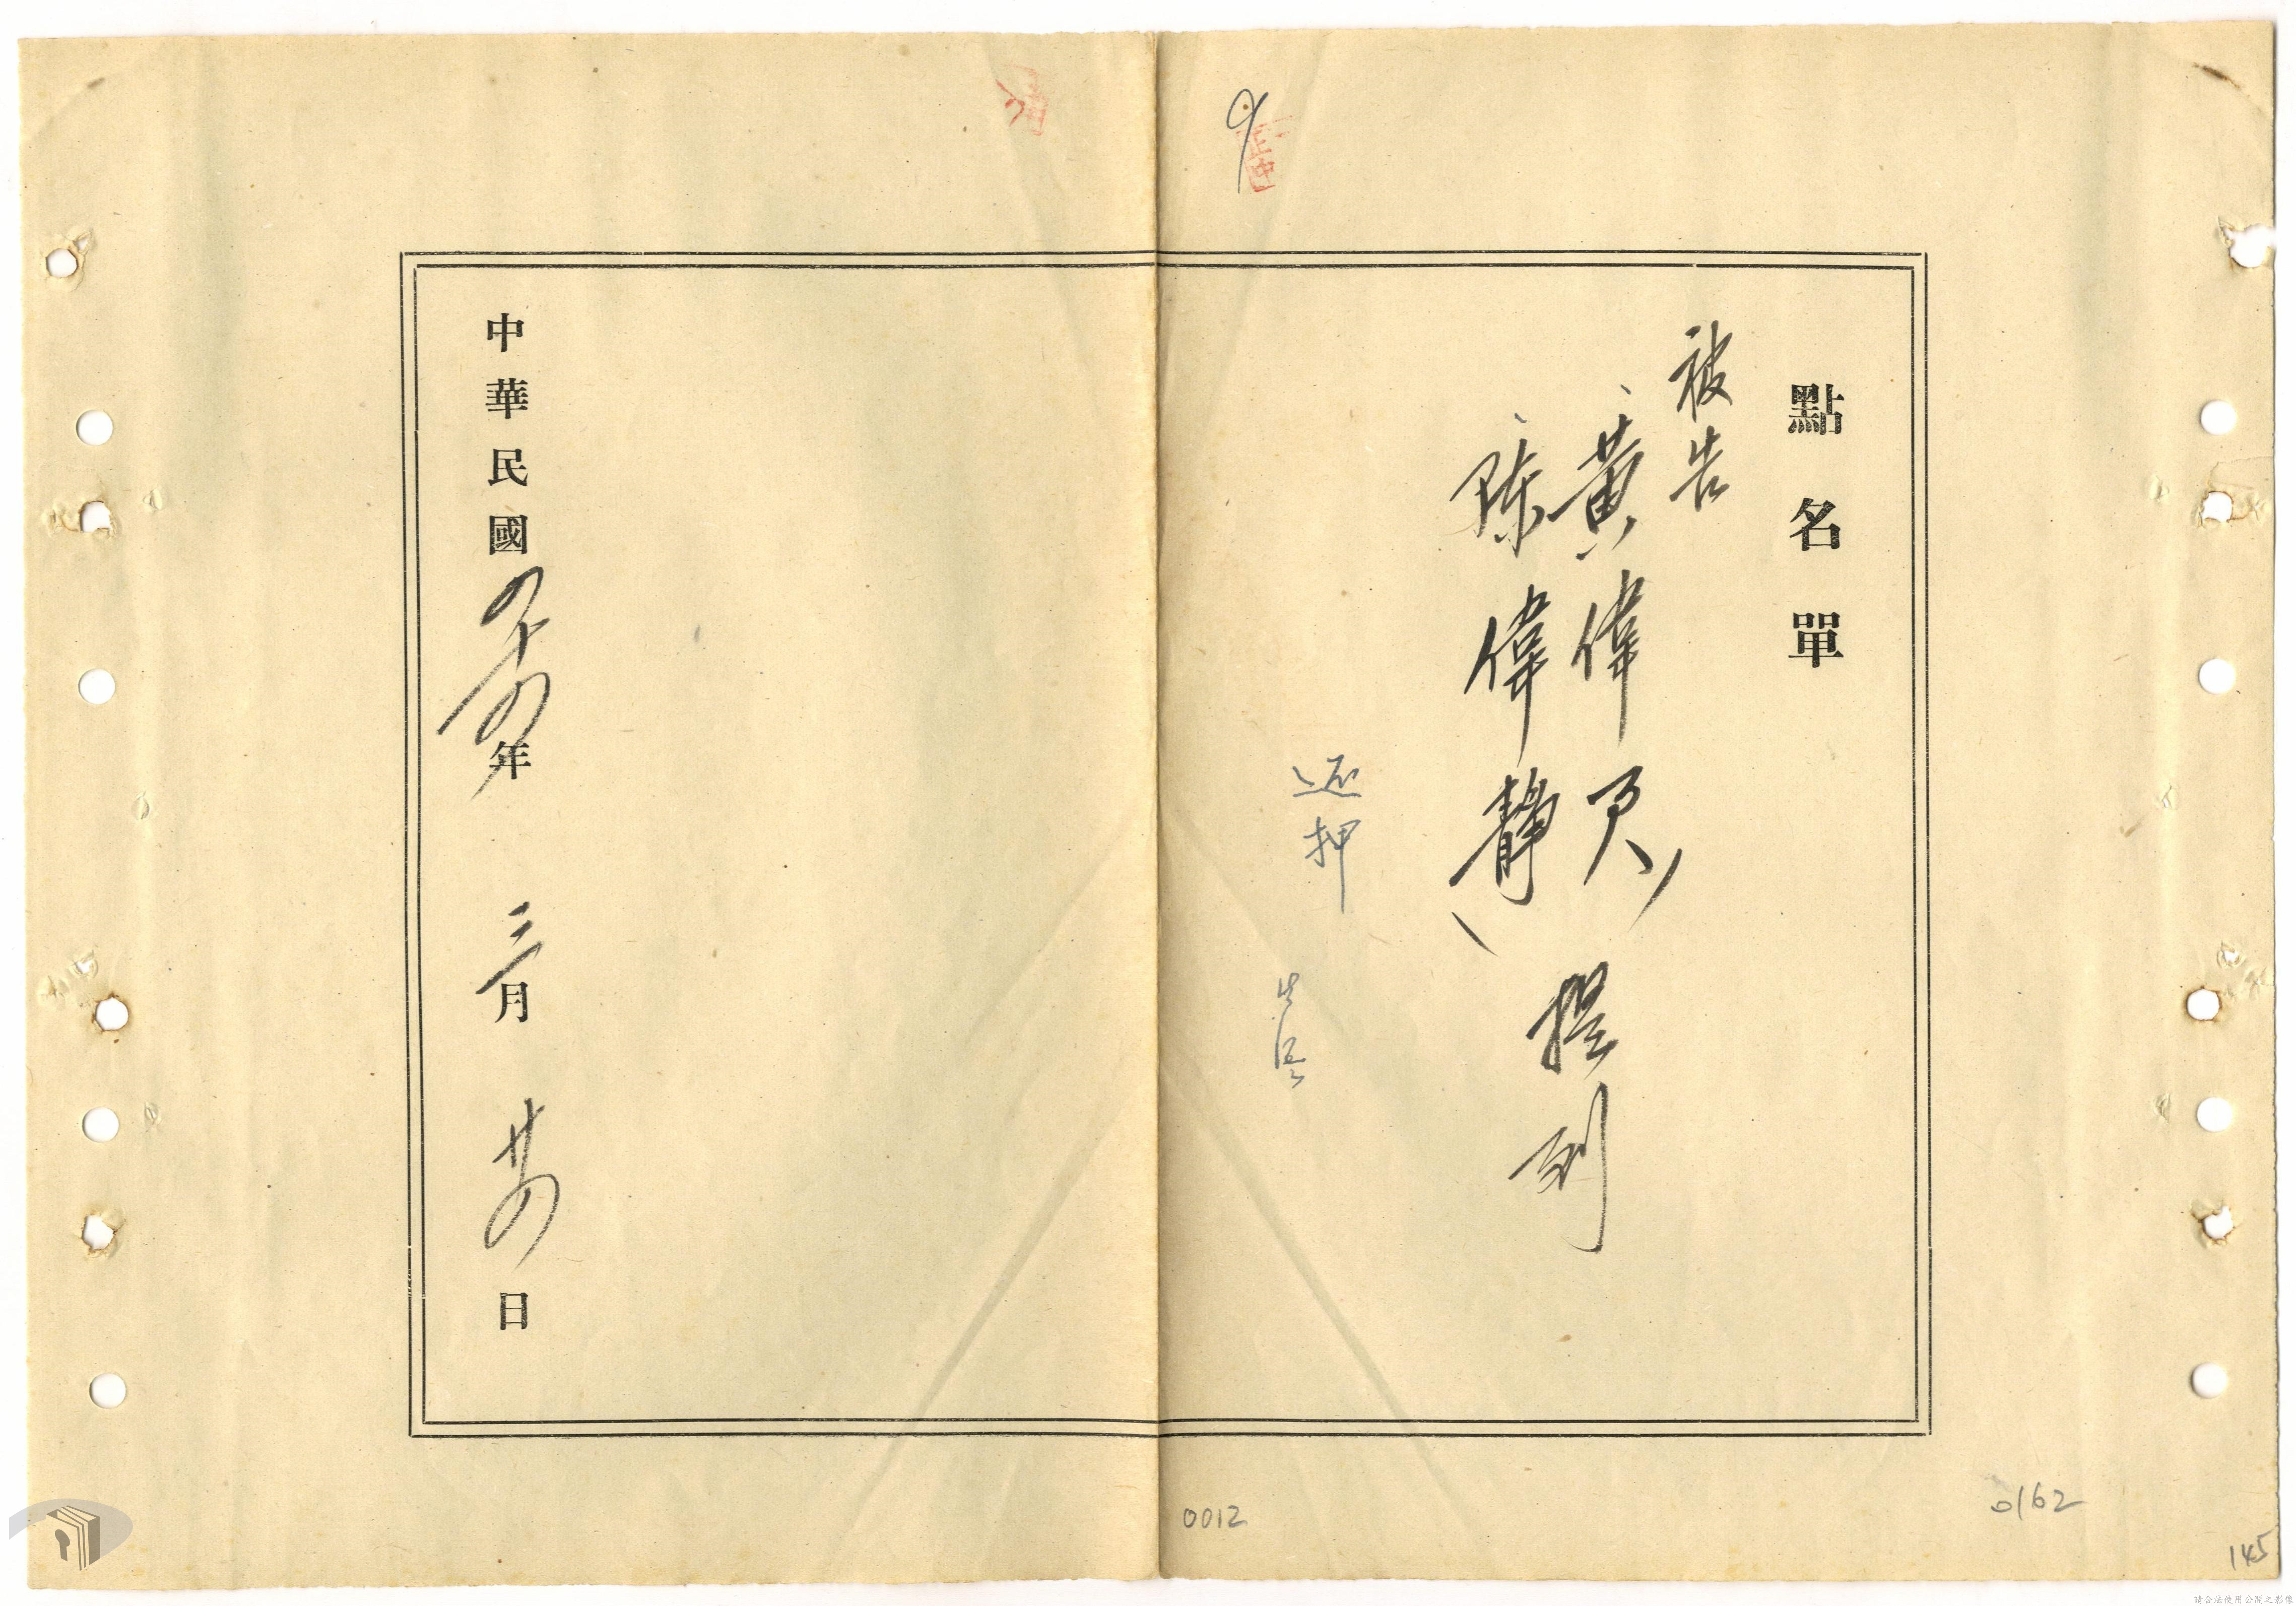 點名單
被告
黃偉
陳偉靜
提到
还押
中華民國四十四年 三月 廿四日
0012
0162
145
請合法使用公開之影像